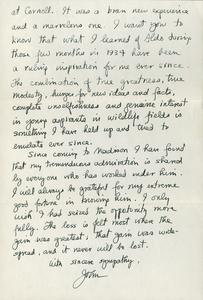 at Cornell. It was a brand new experience
and a marvelous one. I want you to
know that what I learned of Aldo during
those few months in 1934 have been
a ruling inspiration for me ever since.
The combination of true greatness, true
modesty, hunger for new ideas and facts,
complete unselfishness and genuine interest
in young aspirants in wildlife fields is
something I have held up and tried to
emulate ever since.
Since coming to Madison I have found
that my tremendous admiration is shared
by everyone who has worked under him.
I will always be grateful for my extreme
good fortune in knowing him. I only
wish I had seized the opportunity more
fully. The loss is felt most where the
gain was greatest; that gain was wide-
spread, and it never will be lost.
With sincere sympathy,
John